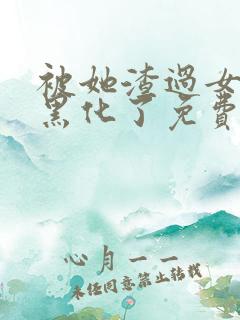 被她渣過女
黑化了免費
心月一一
未经同意禁止转载